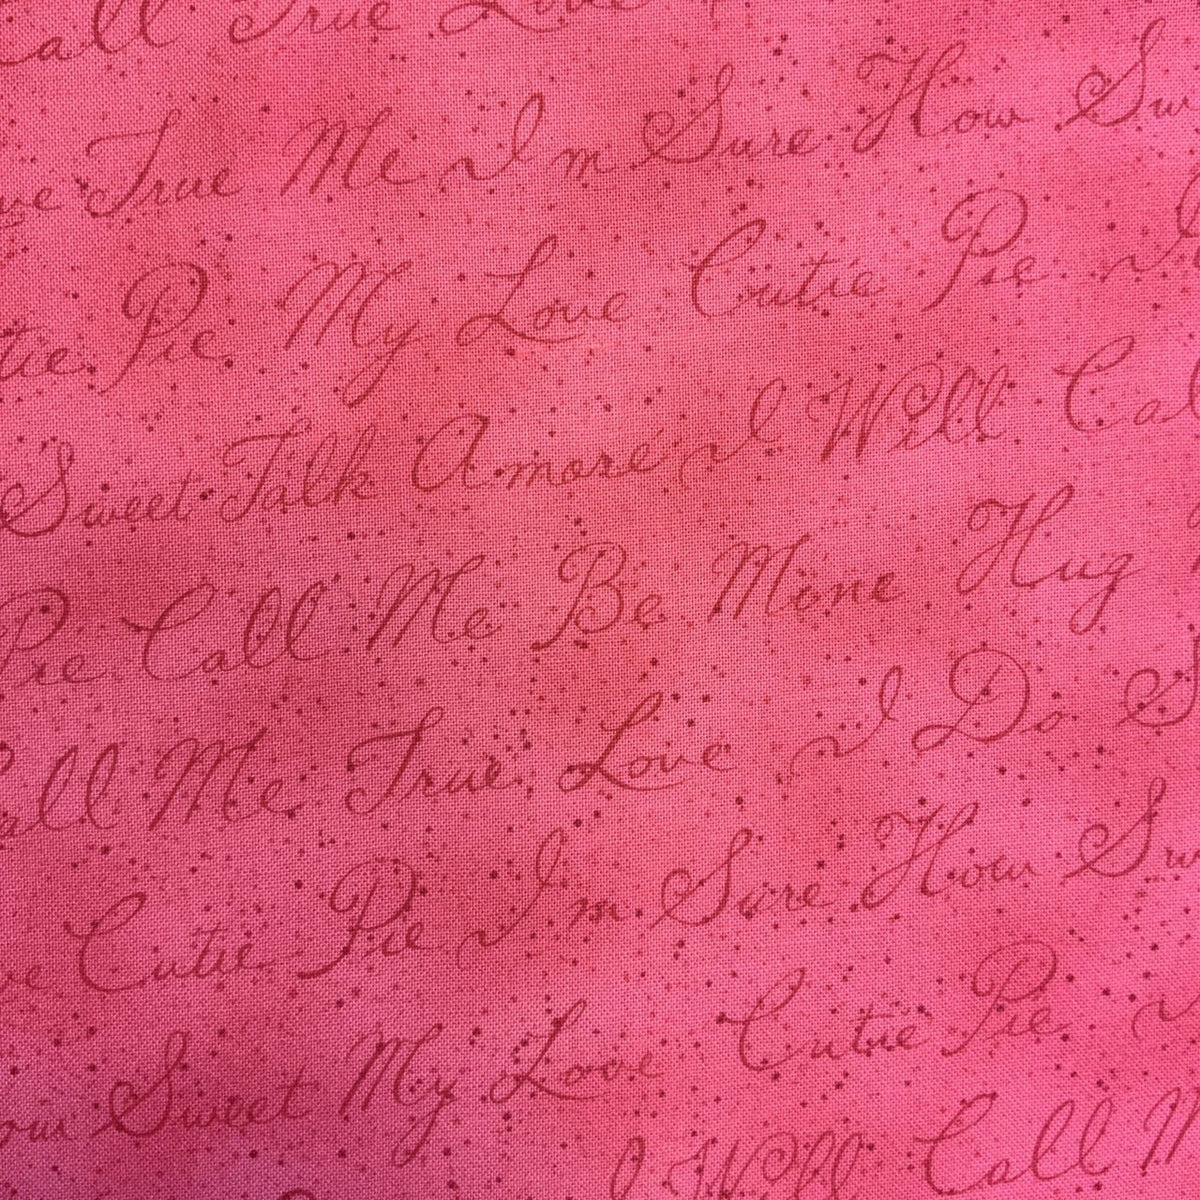 Call True Love
True Me I m Sure How Sw
tie Pie My Love Cutie Pie I
Sweet Talk Amore I Will Cal
Pie Call Me Be Mine Hug
all Me True Love I Do S
ve Cutie Pie I m Sure How Sw
ow Sweet My Love Cutie Pie
I Will Call M